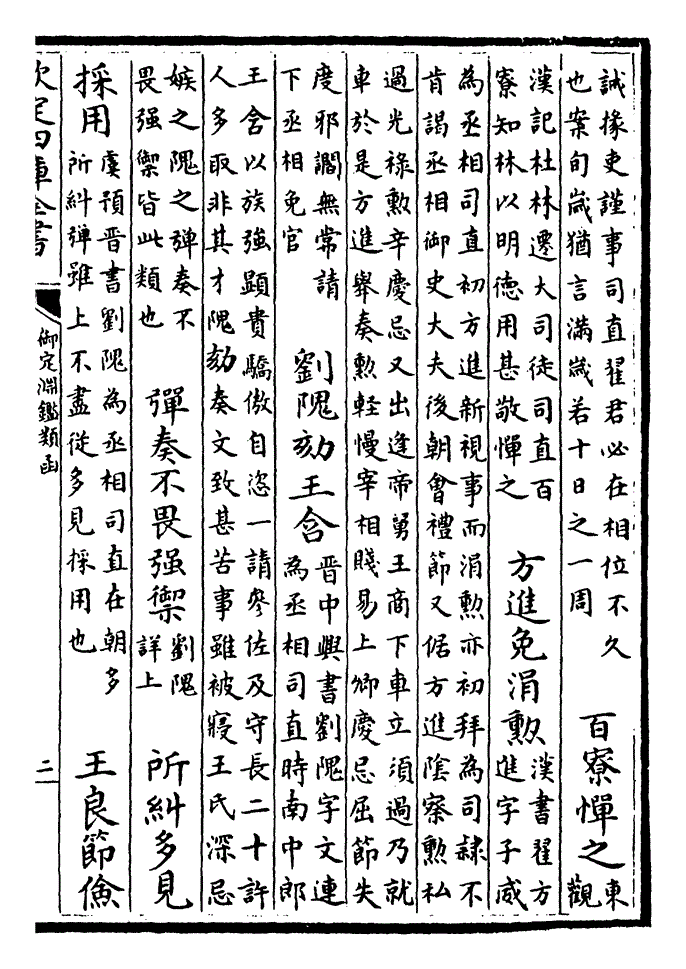 誠掾吏謹事司直翟君必在相位不久
也案旬嵗猶言滿嵗若十日之一周
百寮憚之
東
觀
漢記杜林遷大司徒司直百
寮知林以明德用甚敬憚之
方進免涓勲
漢書翟方
進字子威
為丞相司直初方進新視事而涓勲亦初拜為司隷不
肯謁丞相御史大夫後朝會禮節又倨方進隂察勲私
過光祿勲辛慶忌又出逢帝舅王商下車立須過乃就
車於是方進舉奏勲輕慢宰相賤易上卿慶忌屈節失
度邪讇無常請
下丞相免官
劉隗劾王含
晉中興書劉隗字文連
為丞相司直時南中郎
王含以族強顯貴驕傲自恣一請參佐及守長二十許
人多取非其才隗劾奏文致甚苦事雖被寢王氏深忌
嫉之隗之彈奏不
畏强禦皆此類也
彈奏不畏强禦
劉隗
詳上
所糾多見
採用
虞預晉書劉隗為丞相司直在朝多
所糾彈雖上不盡從多見採用也
王良節儉
欽定四庫全書
御定淵鑑類函
二